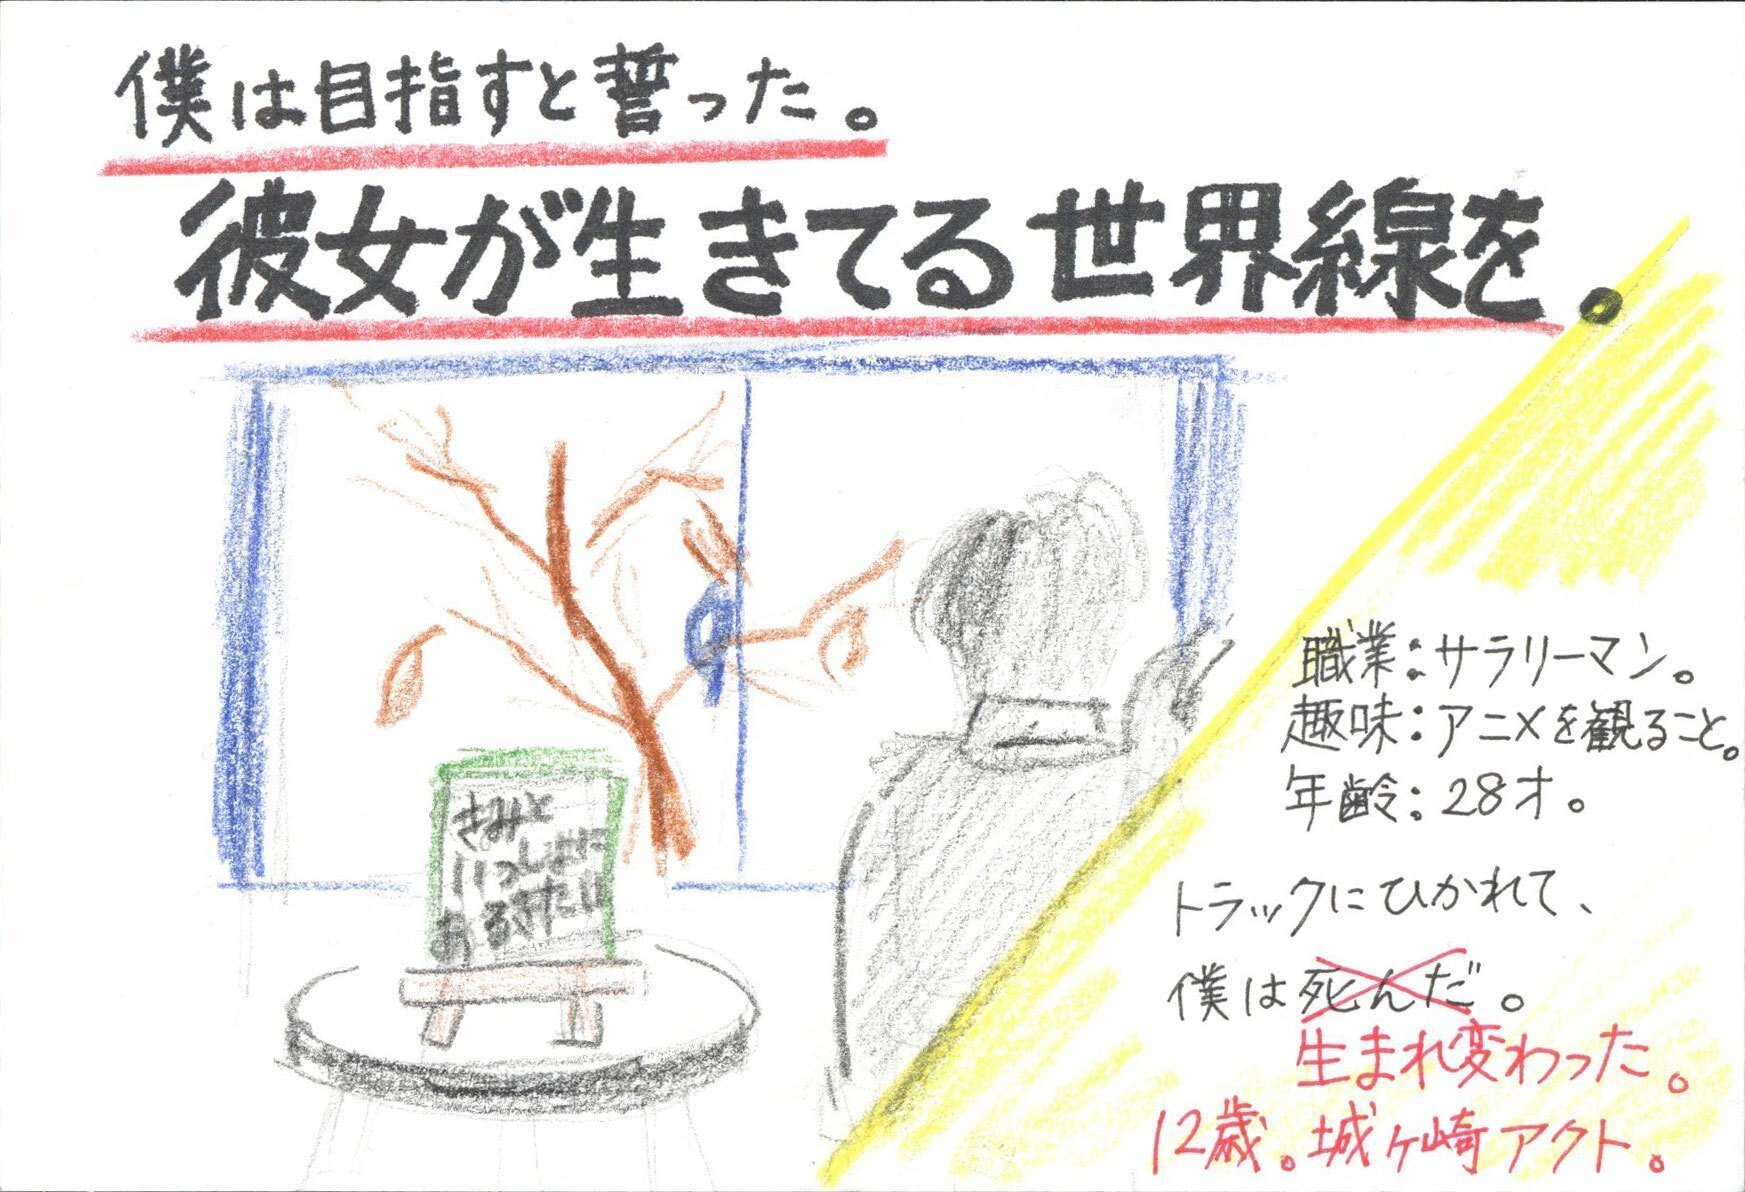 僕は目指すと誓った。
彼女が生きてる世界線を。
きみと
いっしょに
あるきたい
職業：サラリーマン。
趣味：アニメを観ること。
年齢：28才。
トラックにひかれて、
僕は死んだ。
生まれ変わった。
12歳。城ヶ崎アクト。